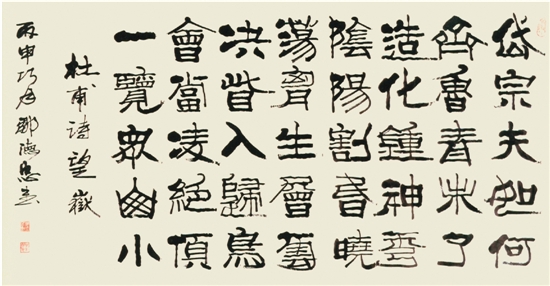 岱宗夫如何
齊魯青未了
造化鍾神秀
陰陽割昏曉
蕩胷生層雲
決眥入歸鳥
會當凌絕頂
一覽眾山小
杜甫詩望嶽
丙申巧月